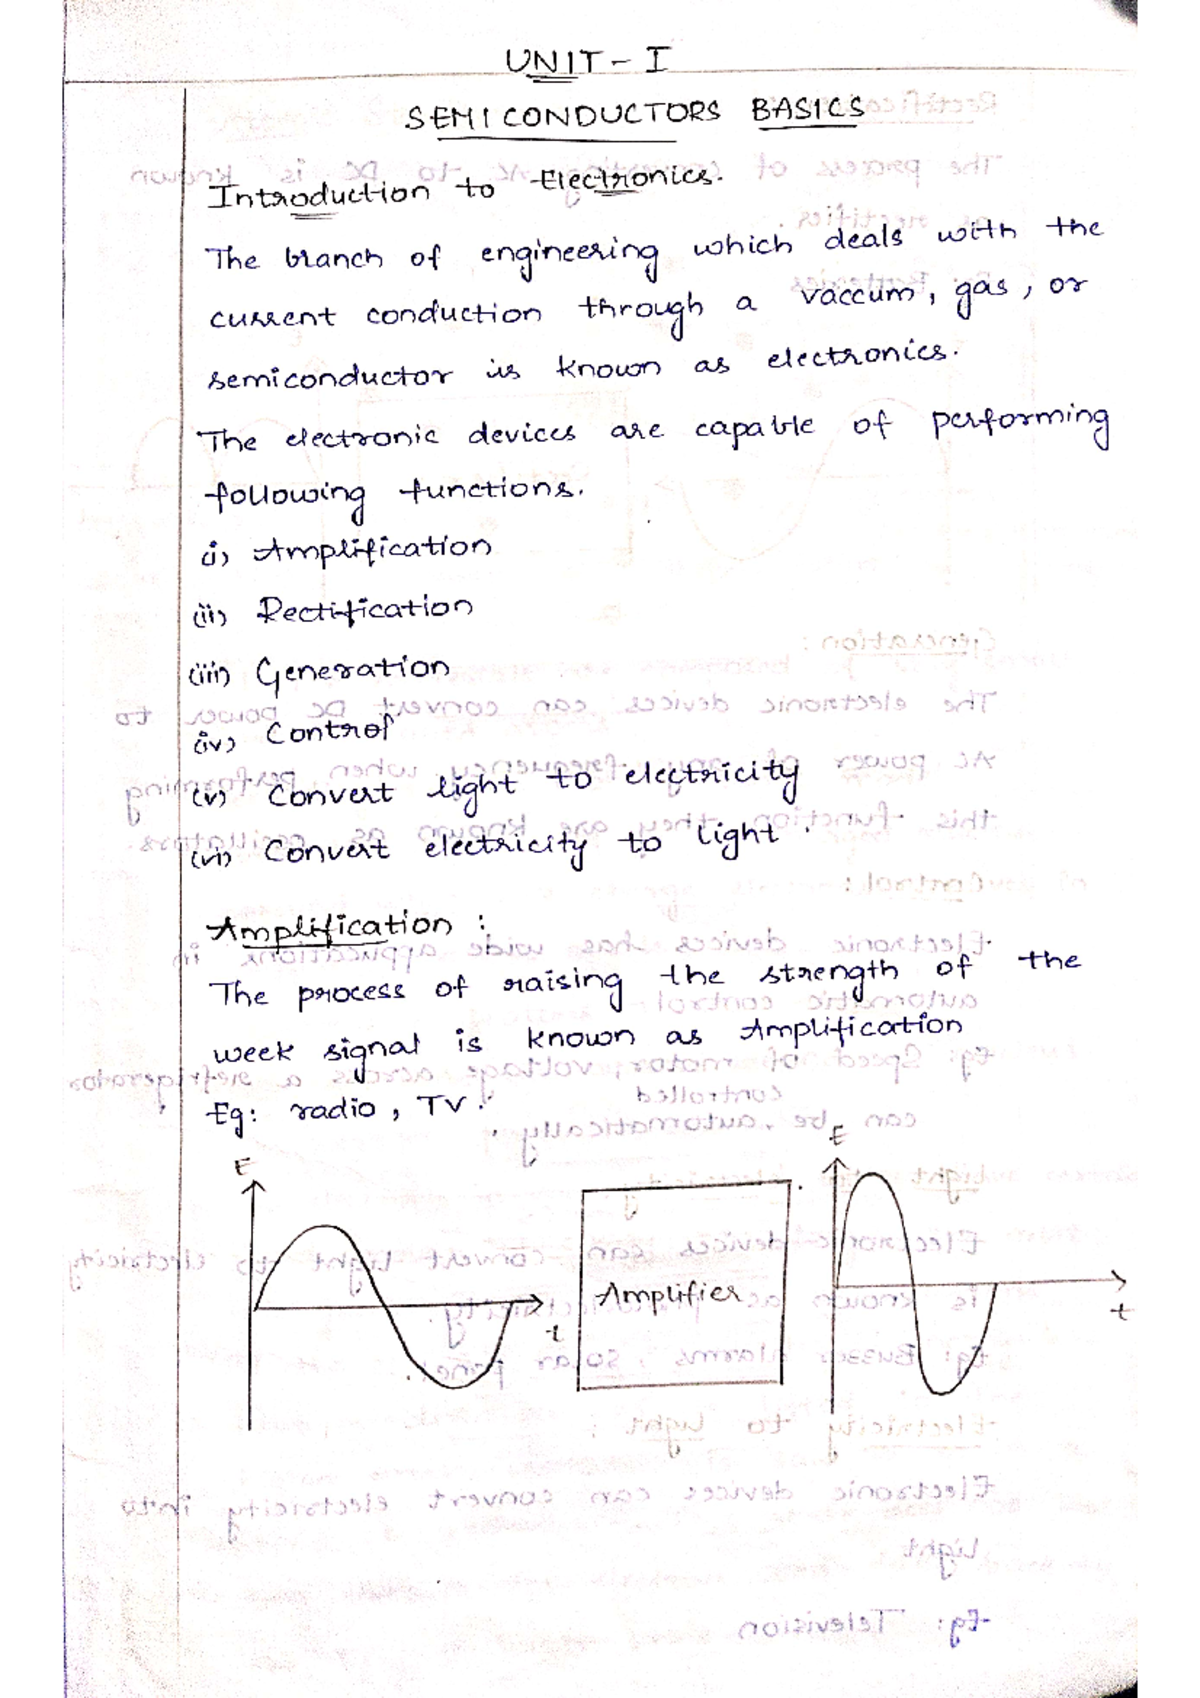 UNIT - I
SEMICONDUCTORS BASICS
Introduction to Electronics.
The branch of engineering which deals with the
current conduction through a vaccum, gas, or
semiconductor is known as electronics.
The electronic devices are capable of performing
following functions.
i) Amplification
(ii) Rectification
(iii) Generation
(iv) Control
(v) Convert light to electricity
(vi) Convert electricity to light.
Amplification :
The process of raising the strength of the
week signal is known as Amplification
Eg: radio, TV.
E
t
Amplifier
E
t